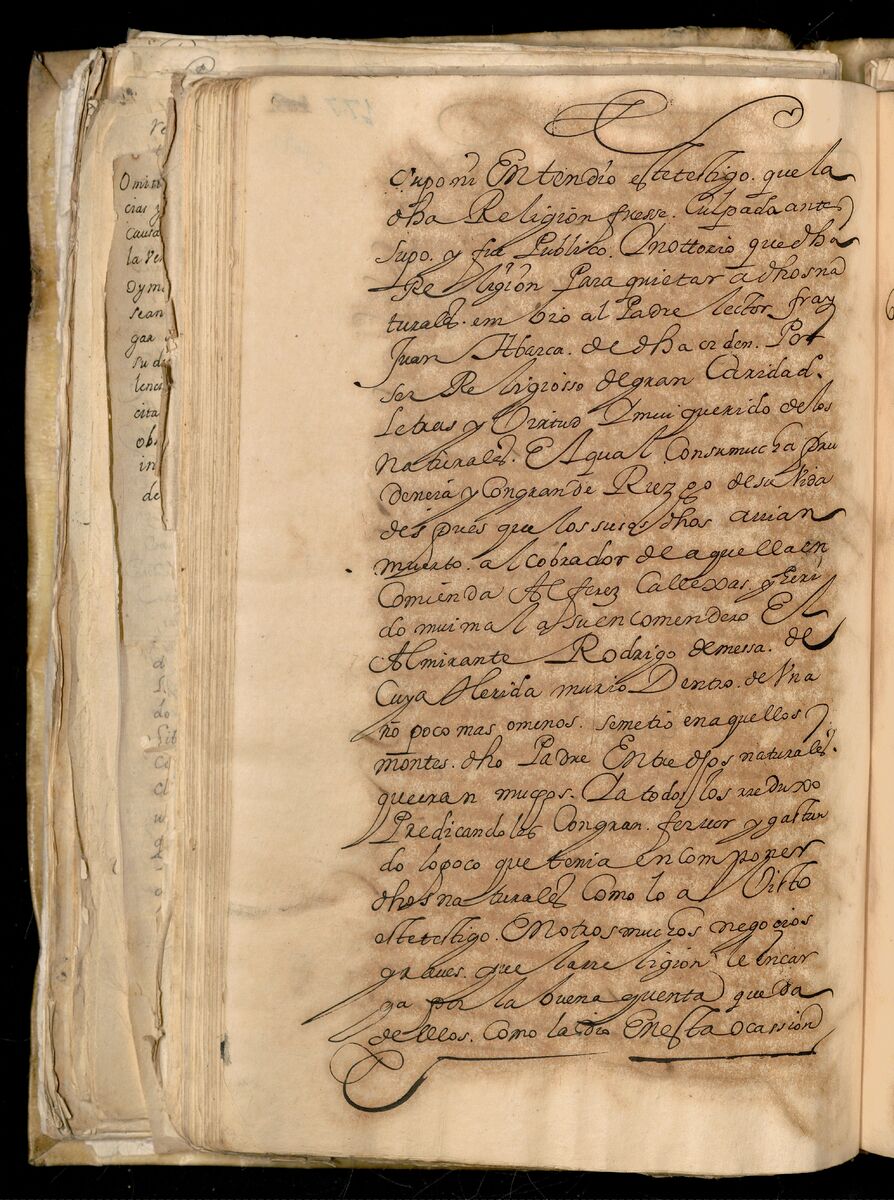 Supo ni Entendio este testigo. que la
dha Religion fuesse. Culpada antes
Supo. y fue Publico. Ynottorio que dha
Religion Para quietar a dhos na
turales. embio al Padre lector fray
Juan Abarca. de dha orden. Por
ser Religiosso de gran Caridad.
Letras y Virtud Ymui querido de los
Naturales. El qual Consumucha pru
dencia y Congrande Riezgo de su Vida
despues que los suios dhos auian
muerto. al cobrador de aquella en
Comienda Alferez Callexas, y heri
do mui mal a su encomendero El
Almirante Rodrigo de messa. de
Cuya Herida murio Dentro. de Vn a
ño poco mas omenos. semetio en aquellos
montes. dho Padre Entre dhos naturales.
que eran muchos. Ya todos los rreduxo
Predicandoles Congran. feruor y gastan
do lo poco que tenia en componer
dhos naturales Como lo a Visto
este testigo. En otros muchos negocios
graues. que la rreligion le encar
ga por la buena quenta que da
de ellos. Como la dio En esta ocassion
Omiti
cias y
causa
la Ve
Dyme
sean
gar
su d
lenc
cita
ob
in
de